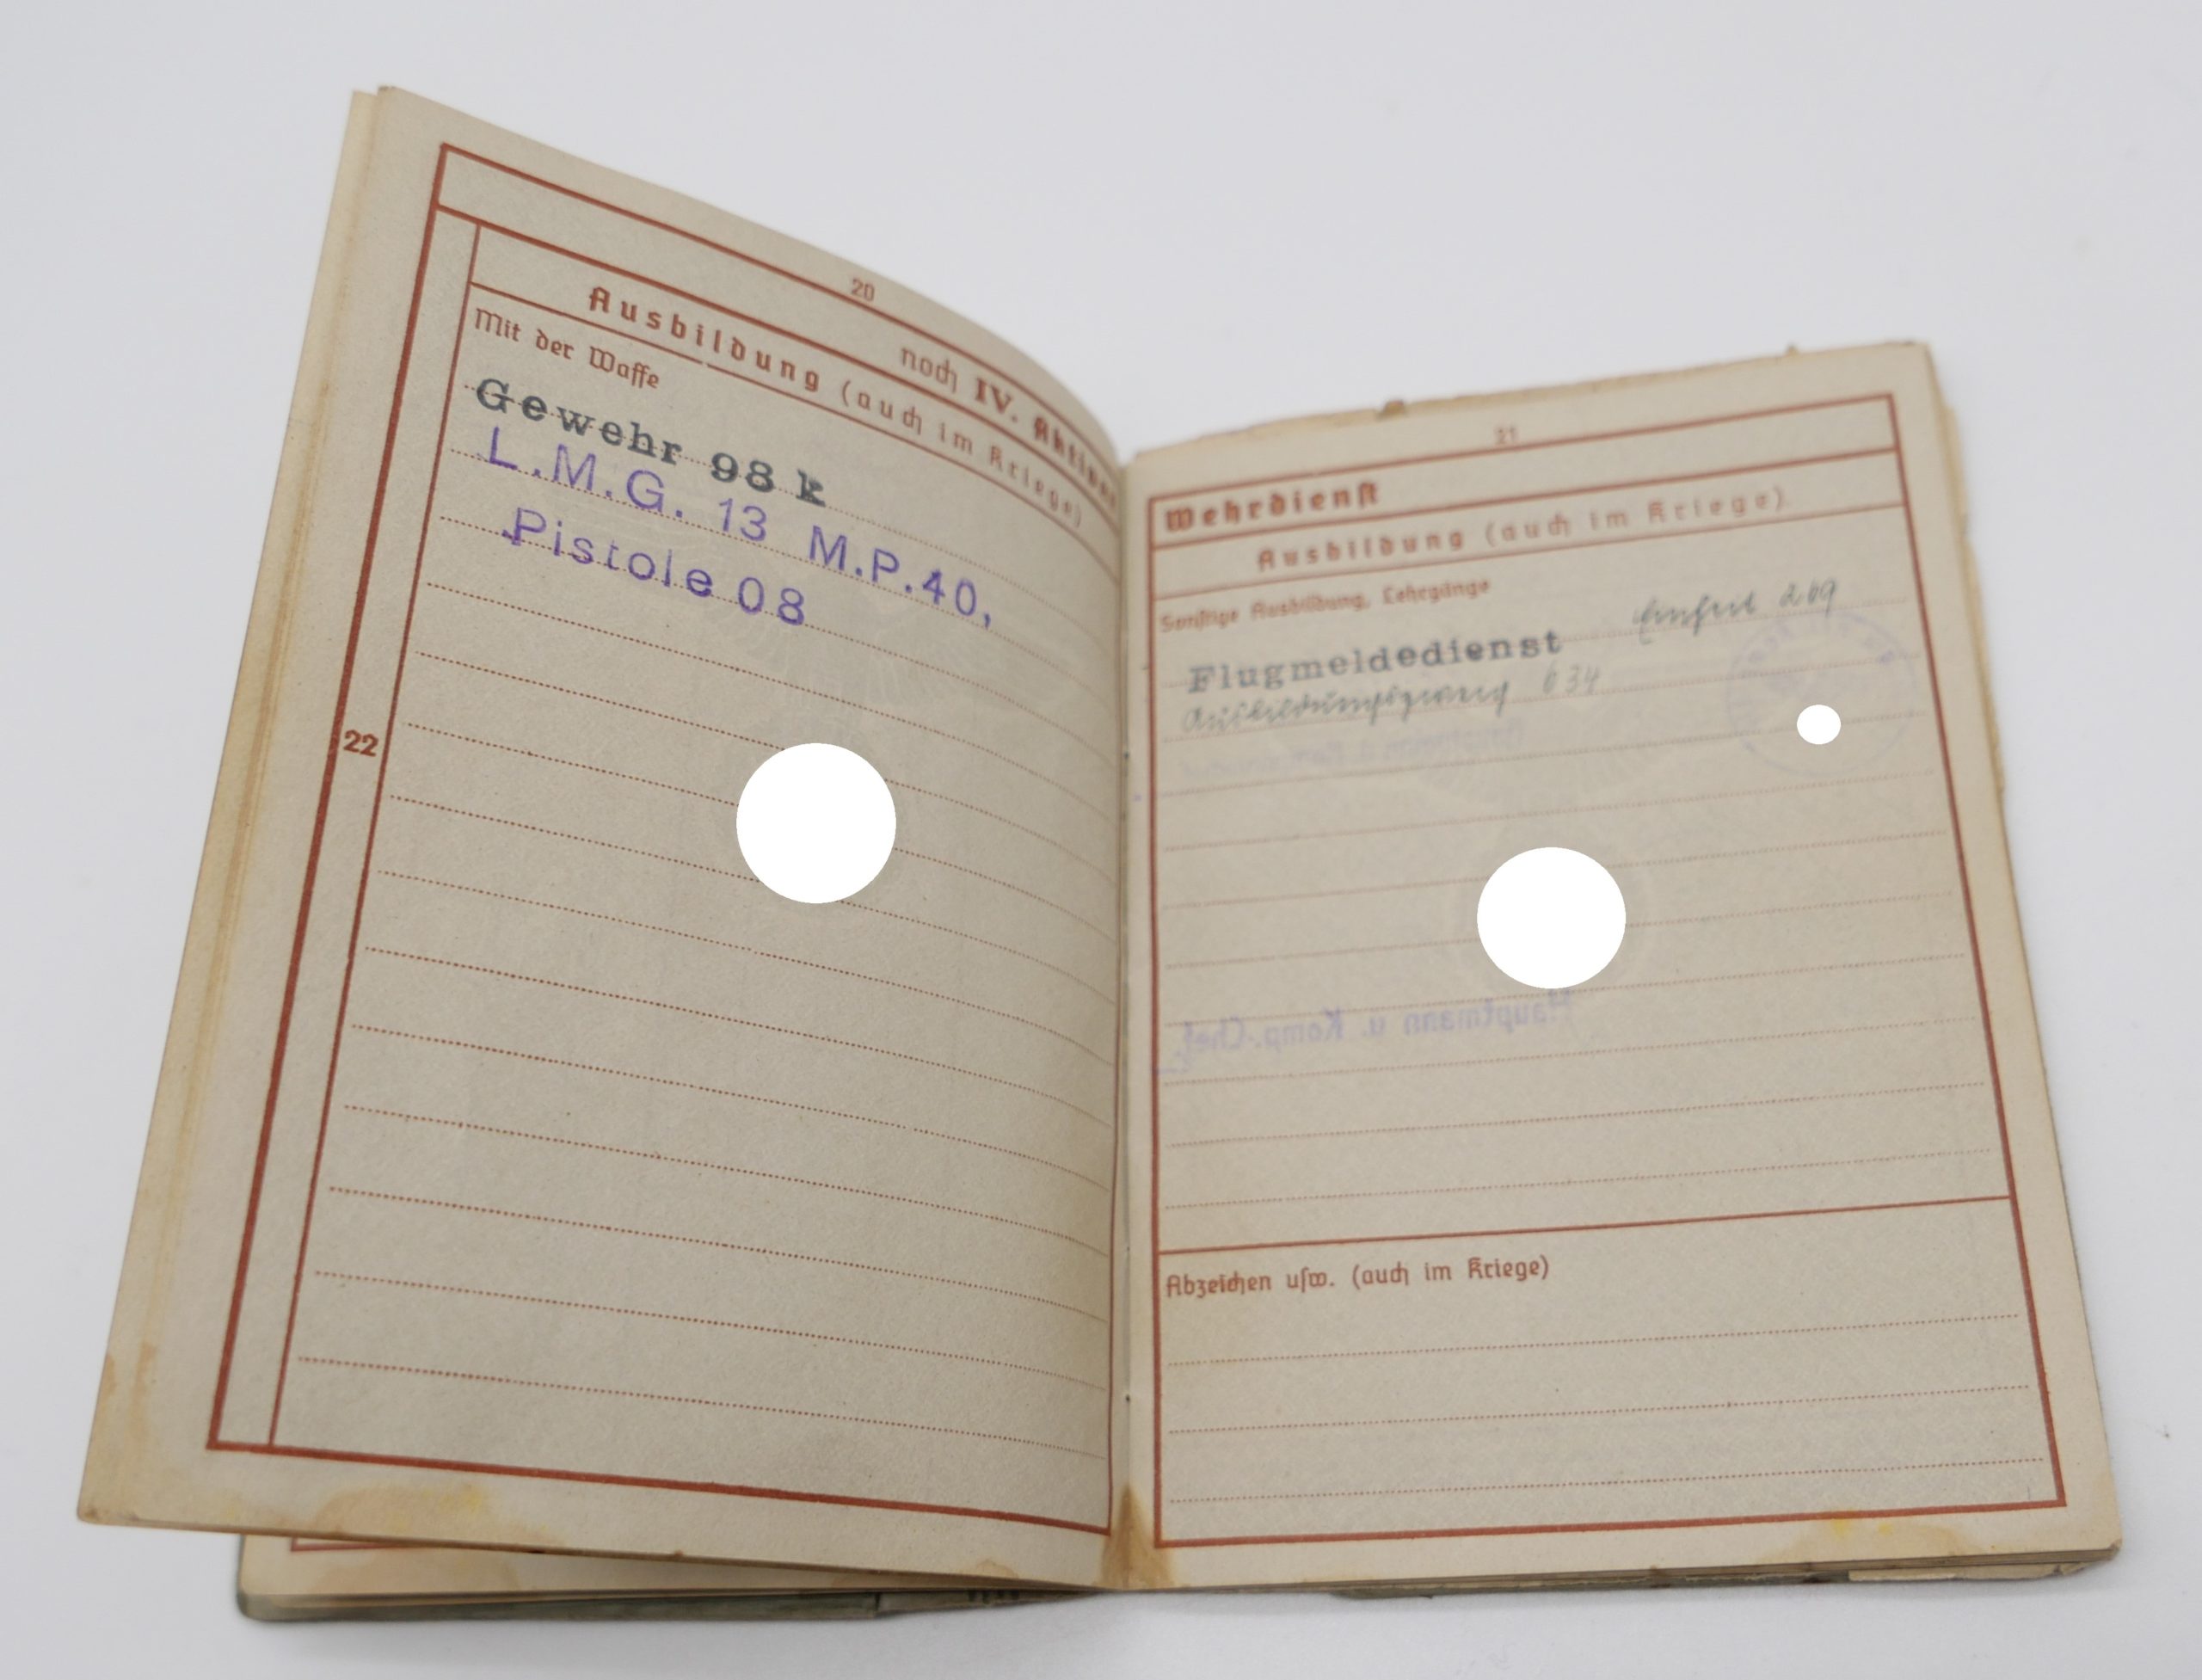 20
noch IV. Aktiver
Ausbildung (auch im Kriege)
Mit der Waffe
Gewehr 98 k
L.M.G. 13 M.P.40,
Pistole 08
22
21
Wehrdienst
Ausbildung (auch im Kriege)
Sonstige Ausbildung, Lehrgänge
Einheit 269
Flugmeldedienst
Ausbildungszweig 634
Hauptmann u. Komp.-Chef
Abzeichen usw. (auch im Kriege)